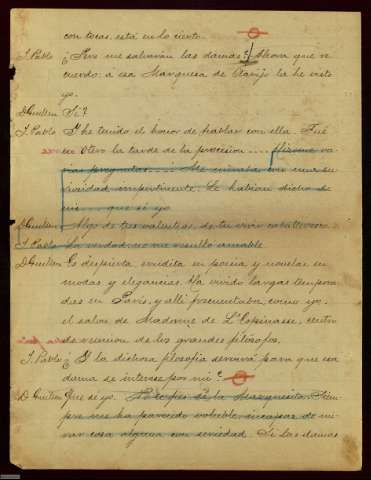 con tocas, está en lo cierto.
J. Pablo ¿Pero me salvarán las damas? Ahora que re
cuerdo: a esa Marquesa de la he visto
yo.
D. Guillen Sí?
J. Pablo Y he tenido el honor de hablar con ella. Fué
en Otero la tarde de la procesion .... Hízome va
rias preguntas..... Me miraba con una cu
riosidad impertinente. Le habían dicho de
mi que sé yo
D. Guillen Algo de tus valentías, de tu vivir
J. Pablo La verdad, no me resultó amable
D. Guillen Es despierta, erudita en poesía y novelas, en
modas y elegancias. Ha vivido largas tempora
das en París, y allí frecuentaba, como yo,
el salon de Madame de L'Espinasse, centro
de reunion de los grandes filósofos.
J. Pablo ¿Y la dichosa filosofía servirá para que esa
dama se interese por mí?
D. Guillen Que sé yo. la Marquesita. Siem
pre me ha parecido voluble, incapaz de mi
rar cosa alguna con seriedad. Si las damas